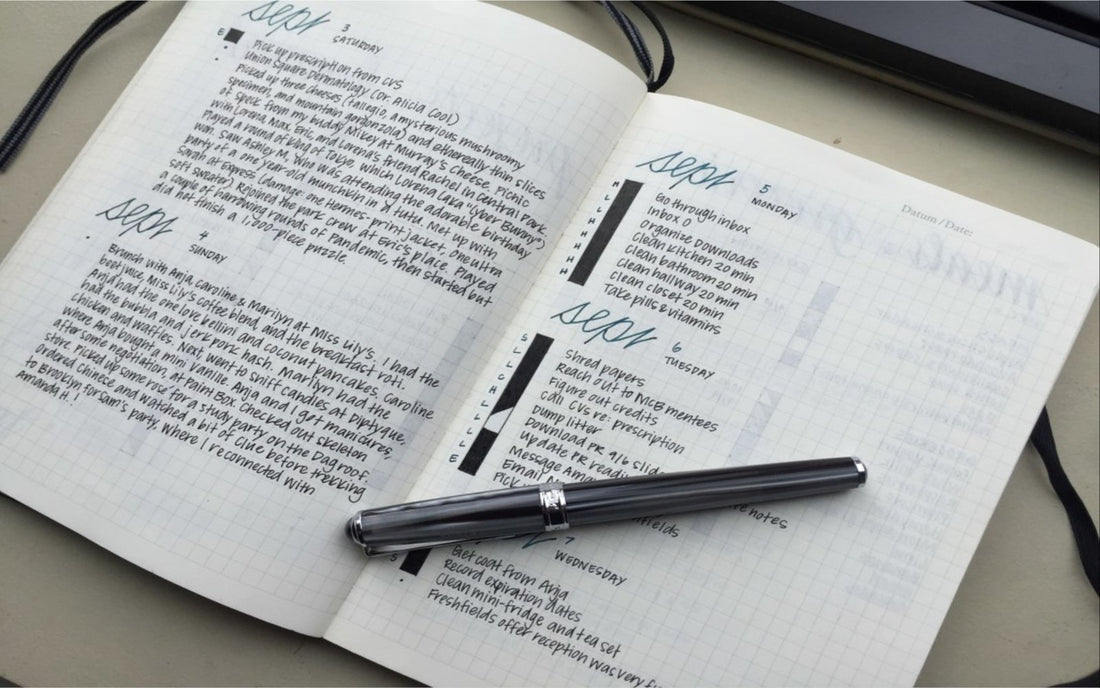 sept 3
SATURDAY
E
Pick up prescription from CVS
Union Square Dermatology (Dr. Alicia Cool)
Picked up three cheeses (talegio, a mysterious mushroomy
specimen, and mountain gorgonzola) and ethereally thin slices
of speck from my buddy Mikey at Murray's Cheese. Picnic
with Lorena, Max, Eric, and Lorena's friend Rachel in Central Park.
Played a round of King of Tokyo, which Lorena (aka "Cyber Bunny")
won. Saw Ashley M. Who was attending the adorable birthday
party of a one year-old munchkin in a tutu. Met up with
Sarah at Express (damage: one Hermes-print jacket, one ultra
soft sweater). Rejoined the park crew at Eric's place. Played
a couple of harrowing rounds of Pandemic, then started but
did not finish a 1,000-piece puzzle.
sept 4
SUNDAY
Brunch with Anja, Caroline & Marilyn at Miss Lily's. I had the
beet juice, Miss Lily's coffee blend, and the breakfast roti.
Anja had the one love bellini and coconut pancakes, Caroline
had the bubbla and jerk pork hash. Marilyn had the
chicken and waffles. Next, went to sniff candles at Diptyque,
where Anja bought a mini Vanille. Anja and I get manicures,
after some negotiation, at Paint Box. Checked out skeleton
store. Picked up some rose for a study party on the Dag roof.
Ordered Chinese and watched a bit of Clue before trekking
to Brooklyn for Sam's party, where I reconnected with
Amanda H.!
sept 5
MONDAY
Datum / Date:
M
L
L
H
H
H
H
H
Go through inbox
Inbox 0
Organize Downloads
Clean kitchen 20 min
Clean bathroom 20 min
Clean hallway 20 min
Clean closet 20 min
Take pills & vitamins
sept 6
TUESDAY
S
L
L
C
H
L
L
L
L
E
Shred papers
Reach out to MCB mentees
Figure out credits
Call CVS re: prescription
Dump litter
Download PR 9/6 slid
Update PR readi
Message Ama
Email
Pick
e notes
nfields
7
WEDNESDAY
S
Get coat from Anja
Record expiration dates
Clean mini-fridge and tea set
Freshfields offer reception was very